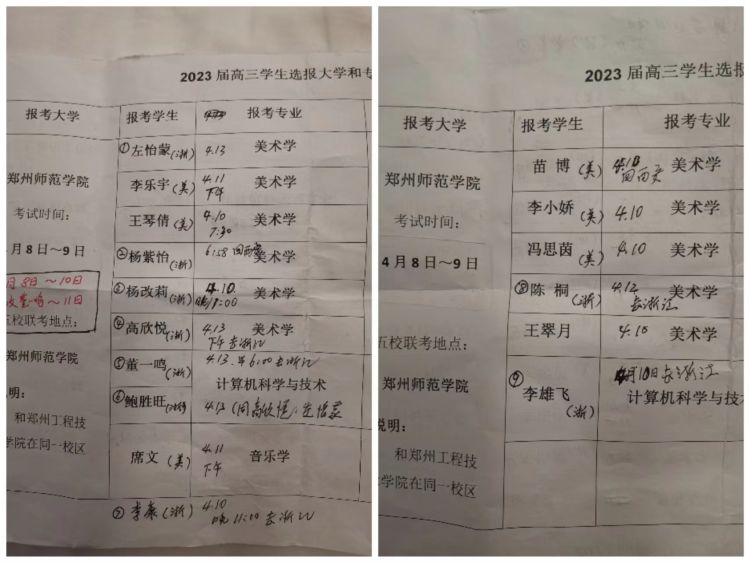 2023 届高三学生选报大学和专
报考大学
报考学生
报考专业
①左怡蒙(浙)
4.13
美术学
李乐宇(美)
4.11
下午
美术学
郑州师范学院
王琴倩(美)
4.10
7:30
美术学
考试时间:
②杨紫怡(浙)
美术学
月 8 日~9 日
③杨改莉(浙)
4.10.
晚/8:00
美术学
月8日~10日
~11日
④高欣悦(浙)
4.13
下午去浙江
美术学
五校联考地点:
⑤董一鸣(浙)
4.13.早6:00去浙江
郑州师范学院
计算机科学与技术
⑥鲍胜旺
4.13(同高欣悦,左怡蒙
明:
和郑州工程技
学院在同一校区
席文(美)
4.11
下午
音乐学
⑦李康(浙)
4.10
晚11:00去浙江
2023 届高三学生选报
报考大学
报考学生
报考专业
苗博(美)
美术学
郑州师范学院
李小娇(美)
4.10
美术学
考试时间:
冯思茵(美)
4.10
美术学
4 月 8 日~9 日
⑧陈桐(浙)
4.12
去浙江
美术学
王翠月
4.10
美术学
五校联考地点:
⑨
李雄飞(浙)
4月10日去浙江
计算机科学与技
郑州师范学院
说明:
和郑州工程技
学院在同一校区